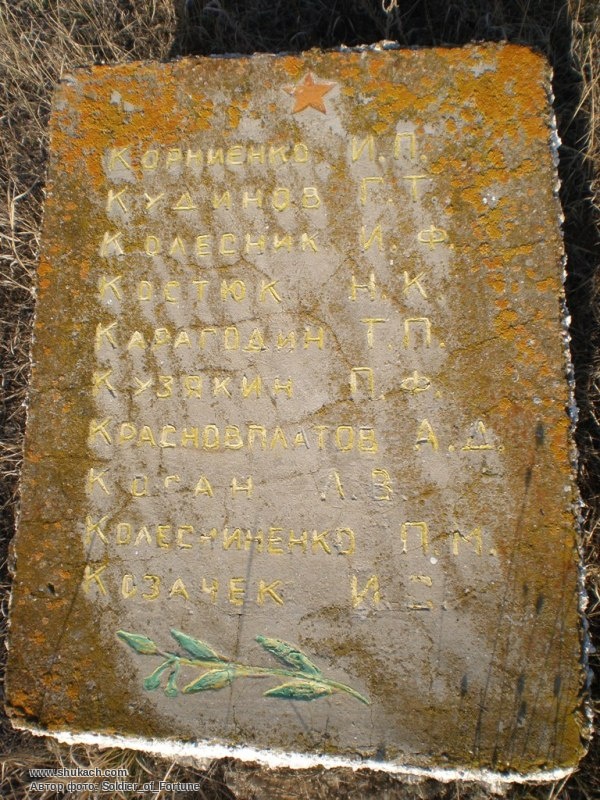 Корниенко И.П.
Кудинов Г.Т.
Колесник И.Ф.
Костюк Н.К.
Карагодин Т.П.
Кузякин П.Ф.
Красновплатов А.Д.
Косан
Колесниненко П.М.
Козачек
www.shukach.com
Автор фото: Soldier_of_Fortune